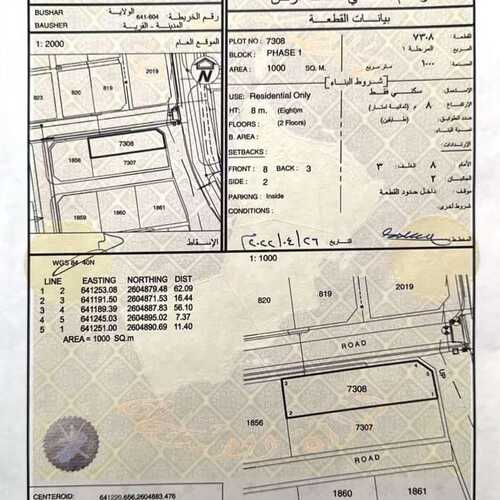 بيانات القطعة
BUSHAR
الولاية
641-604
رقم الخريطة
BAUSHER
المدينة - القرية
1: 2000
الموقع العام
N
2019
819
820
823
7308
1858
7307
1859
1860
1861
PLOT NO : 7308
القطعة
٧٣٠٨
BLOCK : PHASE 1
المربع
المرحلة ١
AREA : 1000 SQ. M.
متر مربع
١٠٠٠
المساحة
[شروط البناء]
USE: Residential Only
الإستعمال
سكني فقط
HT: 8 m. (Eight)m
الإرتفاع
٨ م (ثمانية أمتار)
FLOORS : (2 Floors)
عدد الطوابق
(طابقين)
B. AREA :
نسبة البناء
SETBACKS :
الإرتدادات
FRONT : 8 BACK : 3
الأمام
٨
الخلف
٣
SIDE : 2
الجانبان
٢
PARKING : Inside
موقف
داخل حدود القطعة
CONDITIONS :
شروط أخرى
الإسقاط
WGS 84- 40N
تاريخ
٢٠٢٢/٠٤/٢٦
المخطط
1: 1000
LINE EASTING NORTHING DIST
1 2 641253.08 2604879.48 62.09
2 3 641191.50 2604871.53 16.44
3 4 641189.39 2604887.83 56.10
4 5 641245.03 2604895.02 7.37
5 1 641251.00 2604890.69 11.40
AREA = 1000 SQ.m
820
819
2019
ROAD
UP
7308
1856
7307
ROAD
1860
1861
CENTEROID: 641220.656,2604883.476